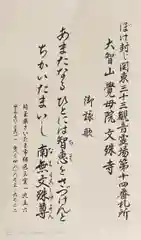 ぼけ封じ関東三十三観音霊場第十四番札所
大智山覺母院文殊寺
御詠歌
あまたなる ひとには智恵を さづけんと
ちかいたまいし 南無文殊尊